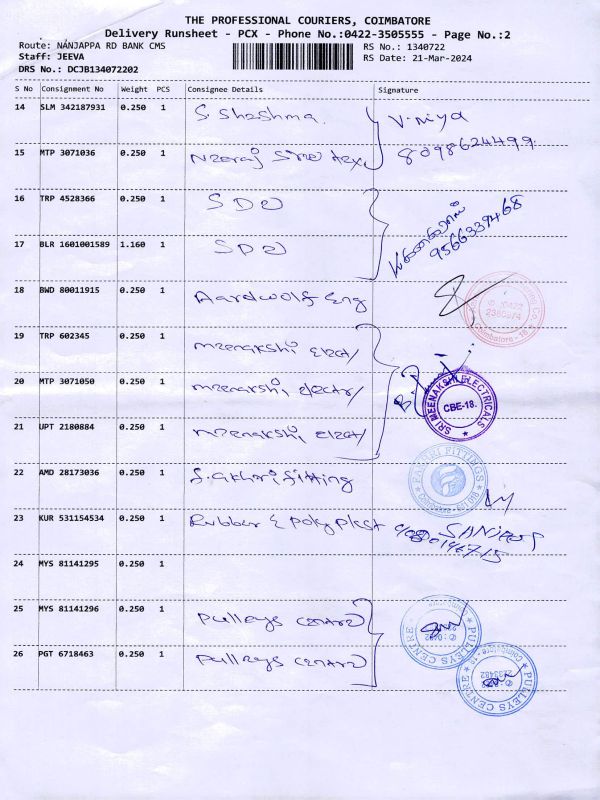 THE PROFESSIONAL COURIERS, COIMBATORE
Delivery Runsheet - PCX - Phone No.:0422-3505555 - Page No.:2
Route: NANJAPPA RD BANK CMS RS No.: 1340722
Staff: JEEVA RS Date: 21-Mar-2024
DRS No.: DCJB134072202
S No Consignment No Weight PCS Consignee Details Signature
14 SLM 342187931 0.250 1 S. Sheshma. V. Niya
8098624499
15 MTP 3071036 0.250 1 Neeraj
16 TRP 4528366 0.250 1 SDW
9566339468
17 BLR 1601001589 1.160 1 SDW
18 BWD 80011915 0.250 1 Aardwolf Eng
Coimbatore - 18
19 TRP 602345 0.250 1 meenakshi elect/
20 MTP 3071050 0.250 1 meenakshi, electr/
SRI MEENAKSHI ELECTRICALS
CBE-18.
21 UPT 2180884 0.250 1 meenakshi, elect/
22 AMD 28173036 0.250 1 fitting
FITTINGS
23 KUR 531154534 0.250 1 Rubber & polyplast
24 MYS 81141295 0.250 1
25 MYS 81141296 0.250 1 Pulleys centre
PULLEYS CENTRE
26 PGT 6718463 0.250 1 Pulleys centre
PULLEYS CENTRE